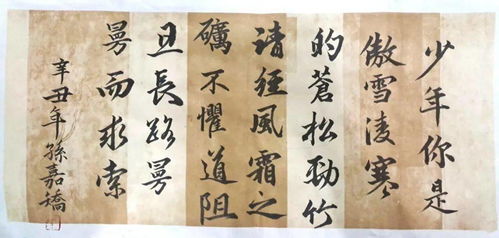 少年你是
傲雪凌寒
的蒼松勁竹
請經風霜之
礪不懼道阻
且長路曼
曼而求索
辛丑年孫嘉矯